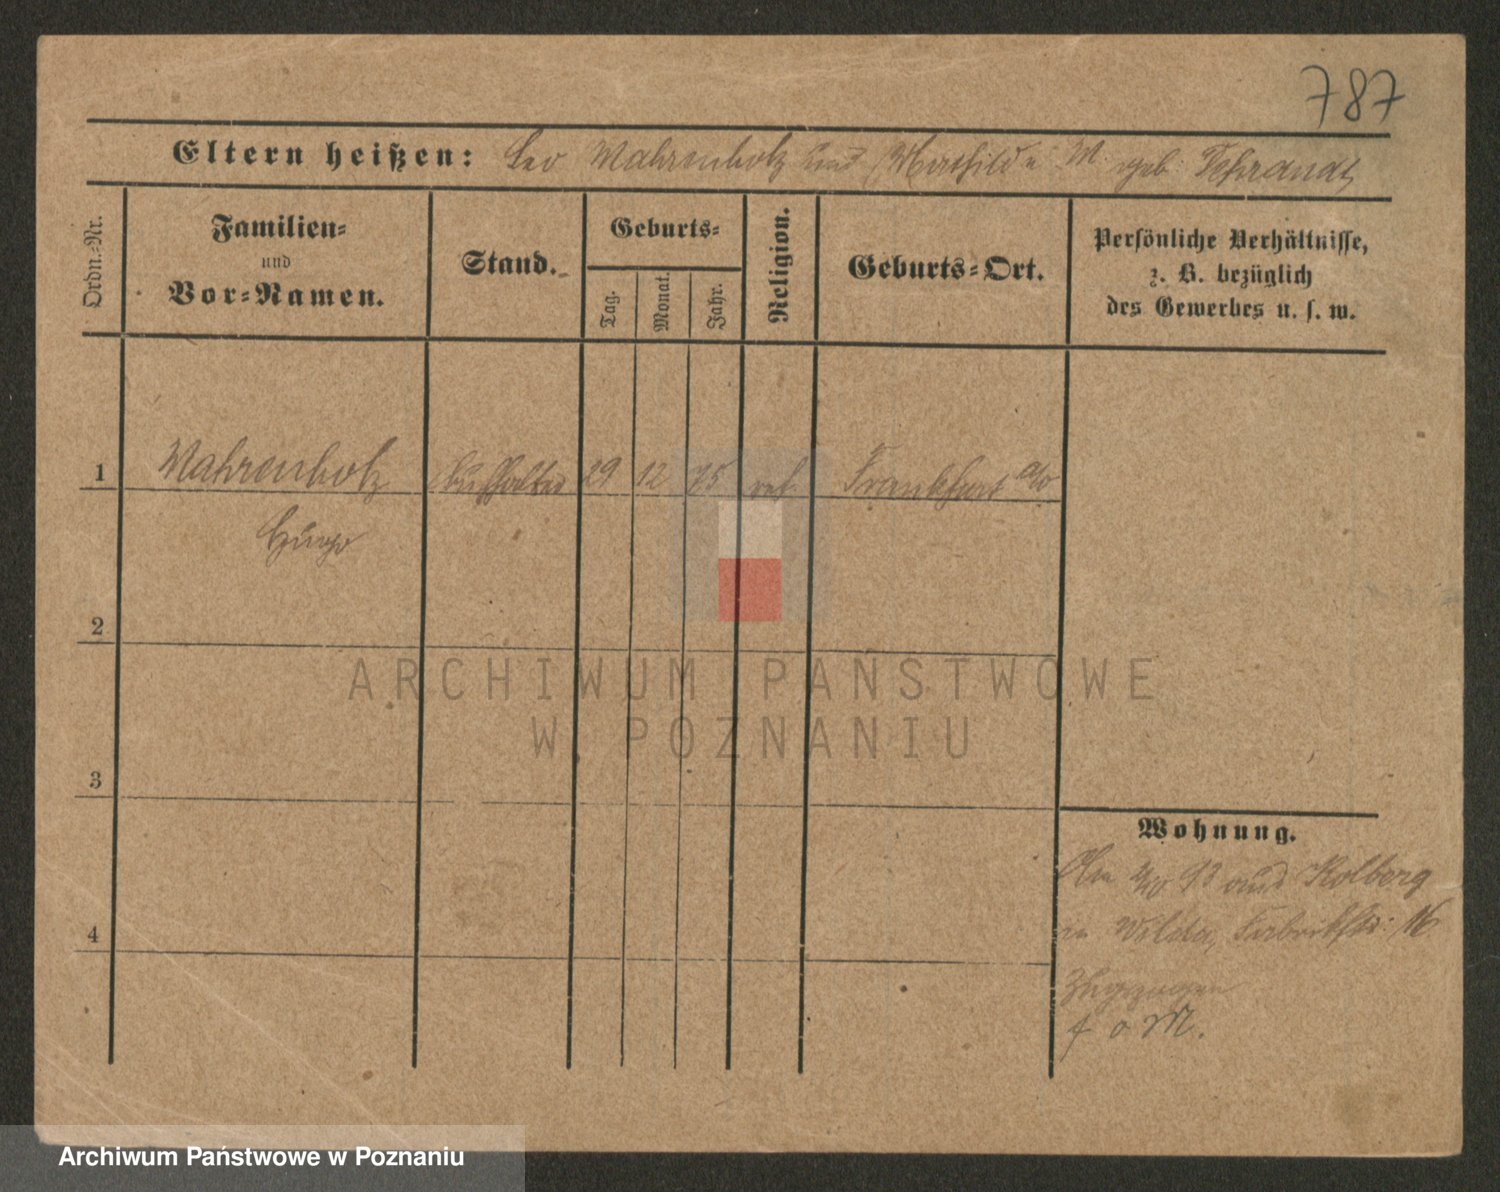 787
Eltern heißen: Leo Wahrenholz und Mathilde W. geb.
Ordn.-Nr.
Familien-
und
Vor-Namen.
Stand.
Geburts-
Tag.
Monat.
Jahr.
Religion.
Geburts-Ort.
Persönliche Verhältnisse,
z. B. bezüglich
des Gewerbes u. s. w.
1 Wahrenholz Buchhalter 29 12 75 ref. Frankfurt a/o
Hugo
2
3
4
Wohnung.
93 aus Kolberg
in Wilda, Fabrikstr. 16
Zugezogen
f o M.
ARCHIWUM PAŃSTWOWE
W POZNANIU
Archiwum Państwowe w Poznaniu